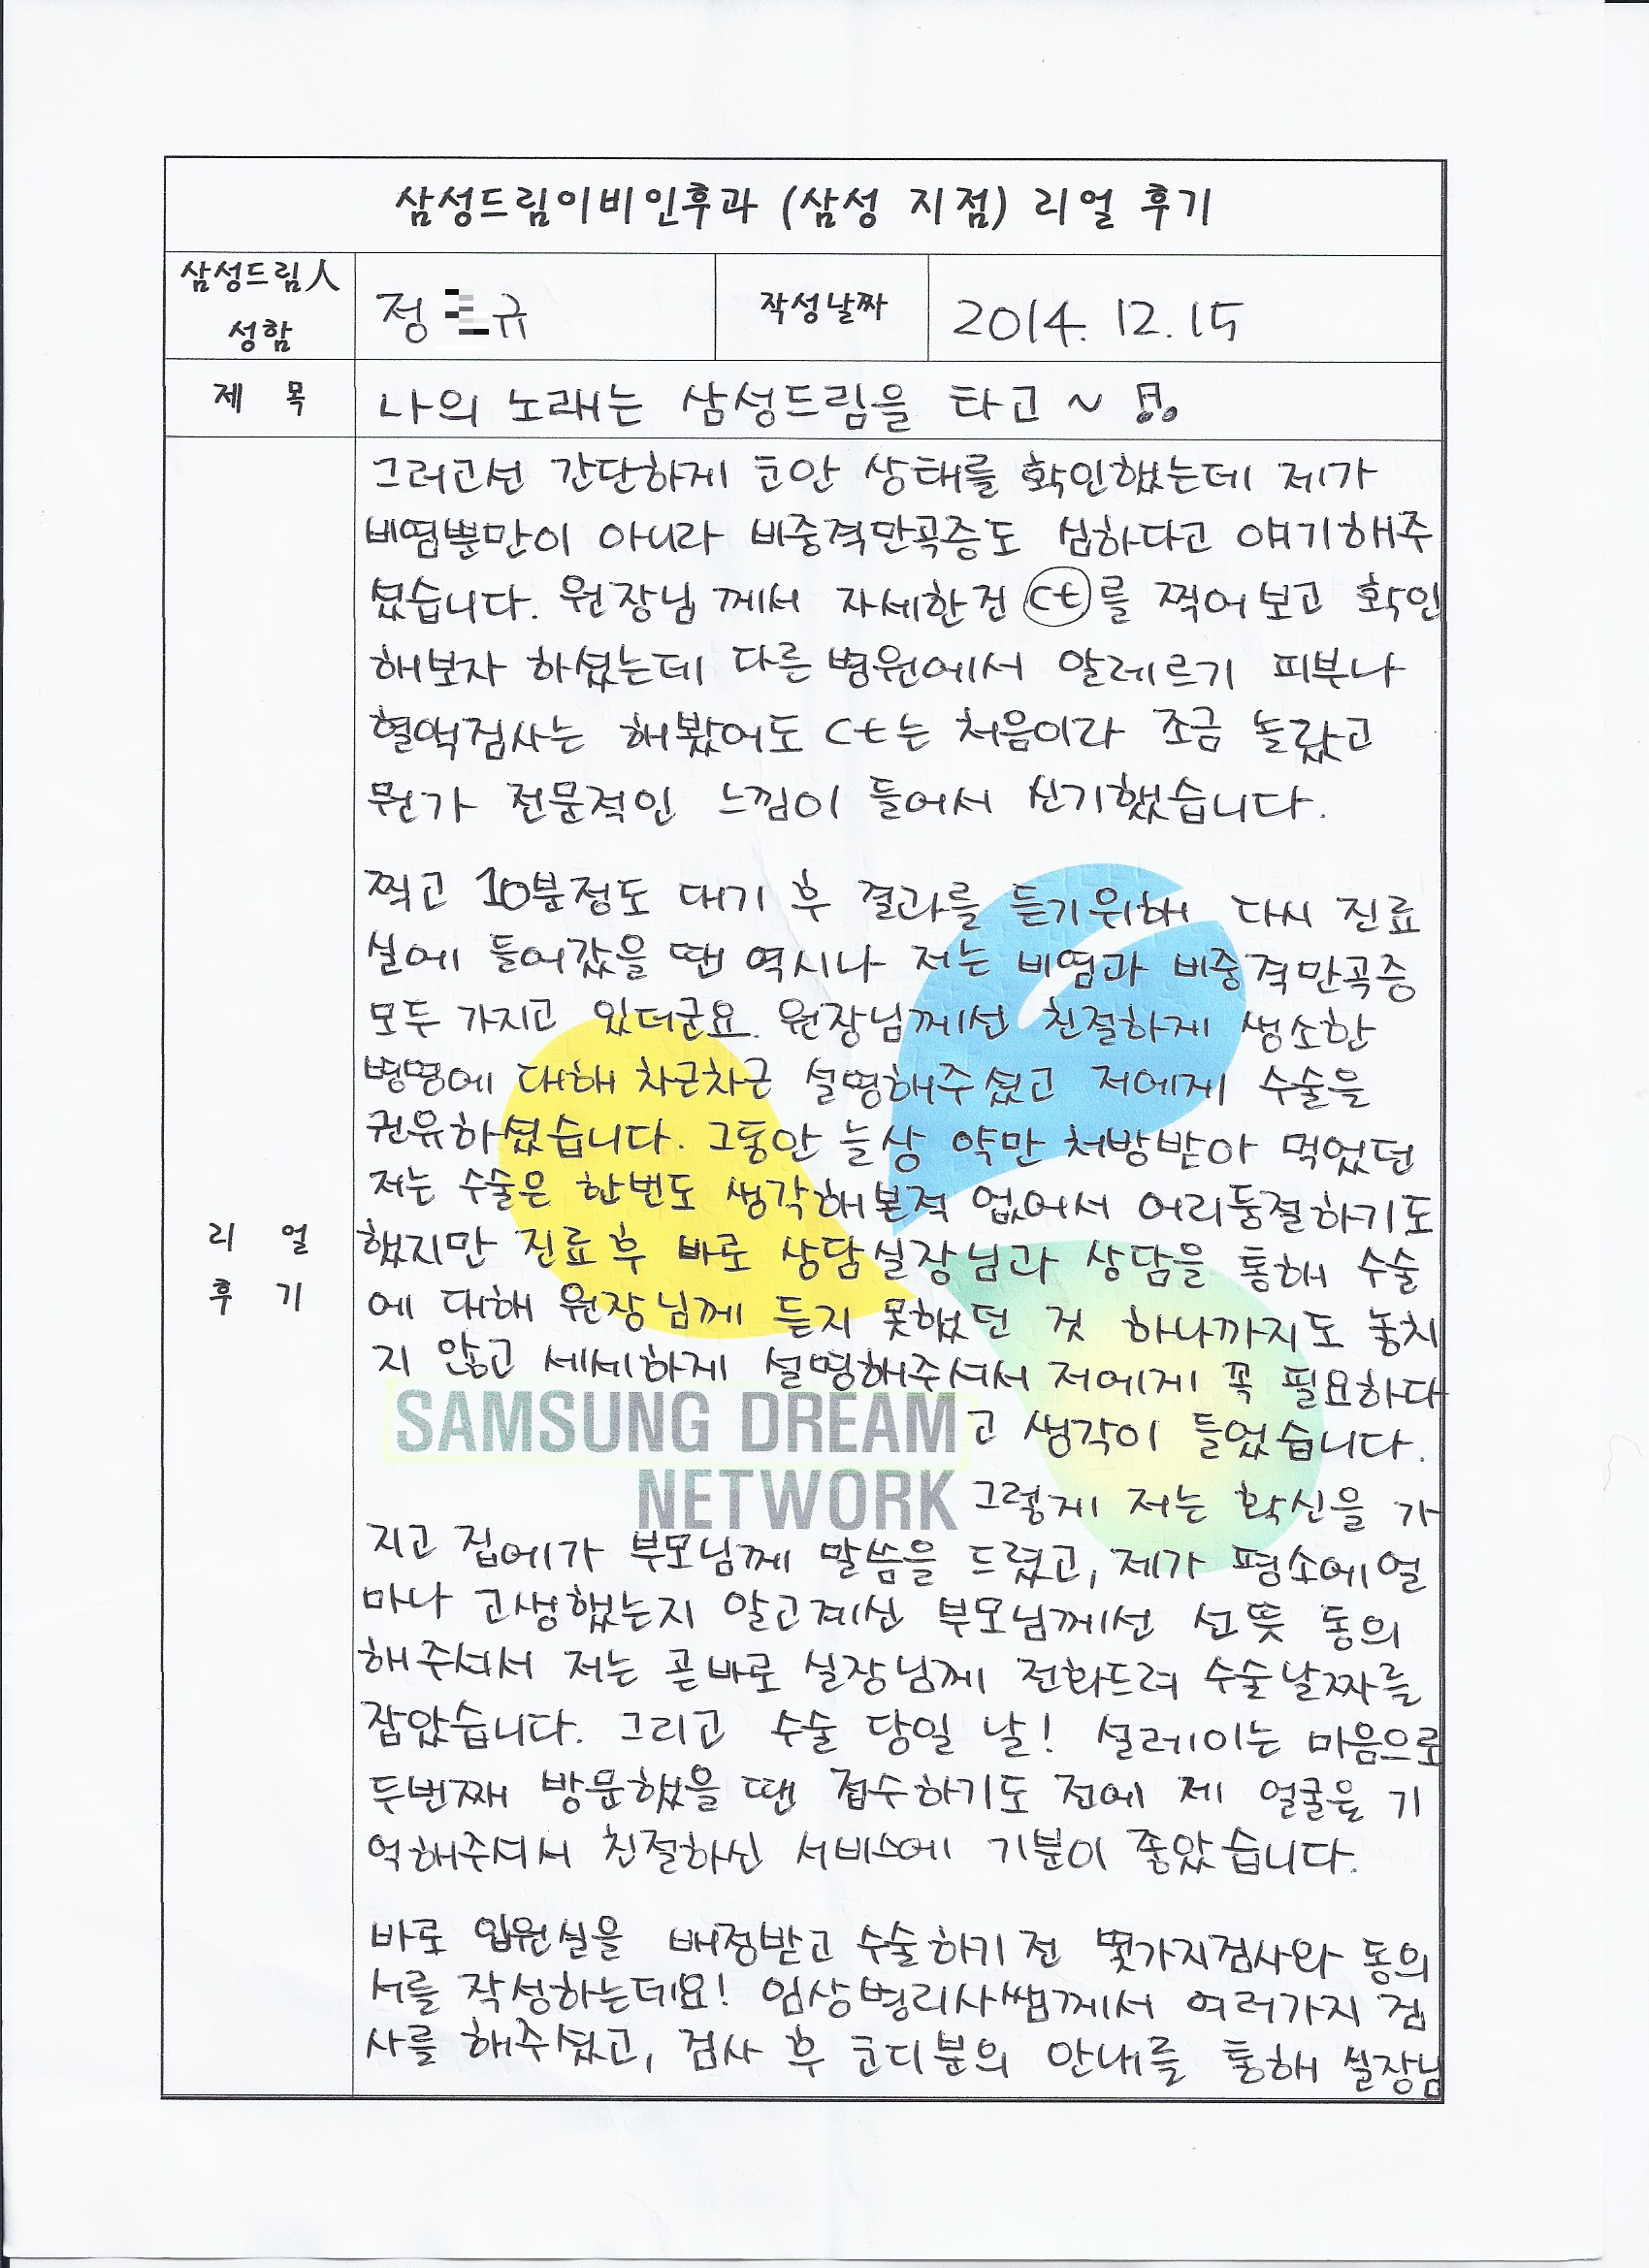 삼성드림이비인후과 (삼성 지점) 리얼 후기
삼성드림人
성함
정 규
작성날짜
2014. 12. 15
제 목
나의 노래는 삼성드림을 타고 ~ ♫
그러고선 간단하게 코안 상태를 확인했는데 제가
비염뿐만이 아니라 비중격만곡증도 심하다고 얘기해주
셨습니다. 원장님께서 자세한건 ct를 찍어보고 확인
해보자 하셨는데 다른 병원에서 알레르기 피부나
혈액검사는 해봤어도 ct는 처음이라 조금 놀랐고
뭔가 전문적인 느낌이 들어서 신기했습니다.
찍고 10분정도 대기 후 결과를 듣기위해 다시 진료
실에 들어갔을 땐 역시나 저는 비염과 비중격만곡증
모두 가지고 있더군요. 원장님께선 친절하게 생소한
병명에 대해 차근차근 설명해주셨고 저에게 수술을
권유하셨습니다. 그동안 늘상 약만 처방받아 먹었던
저는 수술은 한번도 생각해본적 없어서 어리둥절하기도
했지만 진료후 바로 상담실장님과 상담을 통해 수술
에 대해 원장님께 듣지 못했던 것 하나까지도 놓치
지 않고 세세하게 설명해주셔서 저에게 꼭 필요하다
고 생각이 들었습니다.
SAMSUNG DREAM
NETWORK
그렇게 저는 확신을 가
지고 집에가 부모님께 말씀을 드렸고, 제가 평소에 얼
마나 고생했는지 알고계신 부모님께선 선뜻 동의
해주셔서 저는 곧바로 실장님께 전화드려 수술날짜를
잡았습니다. 그리고 수술 당일 날! 설레이는 마음으로
두번째 방문했을 땐 접수하기도 전에 제 얼굴을 기
억해주셔서 친절하신 서비스에 기분이 좋았습니다.
바로 입원실을 배정받고 수술하기 전 몇가지검사와 동의
서를 작성하는데요! 임상병리사쌤께서 여러가지 검
사를 해주셨고, 검사 후 코디분의 안내를 통해 실장님
리 얼
후 기